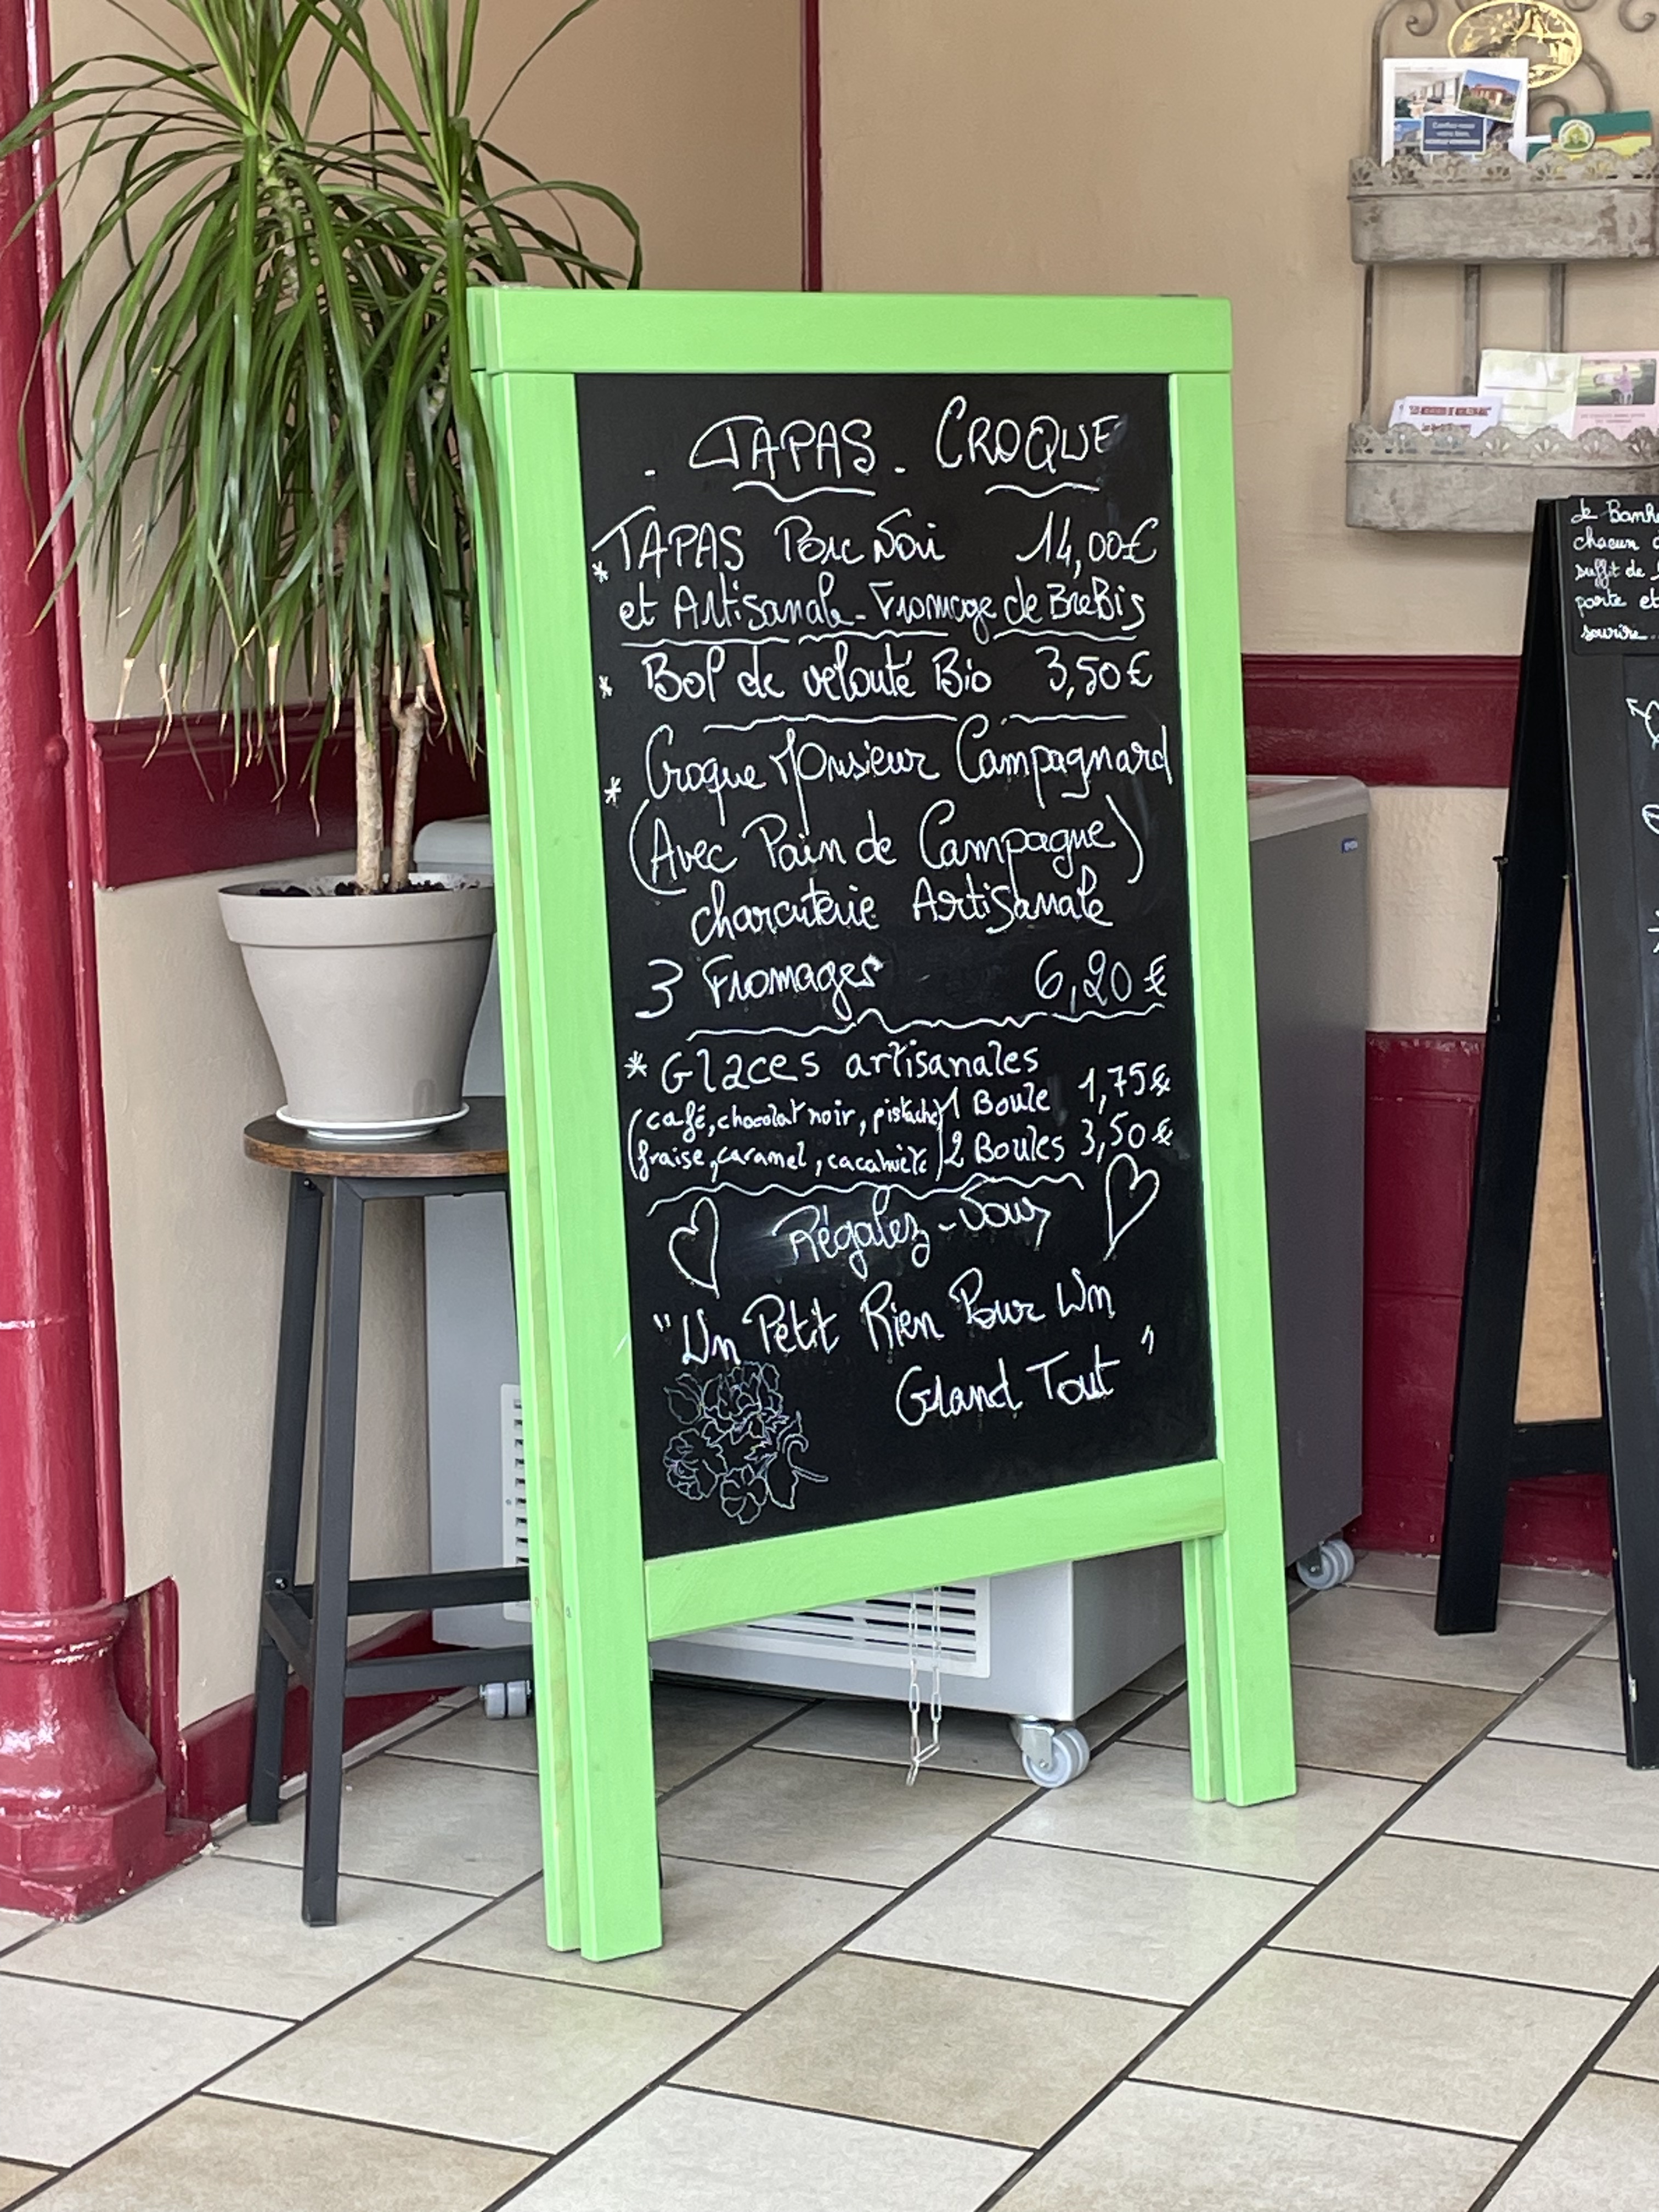 . TAPAS - CROQUE
* TAPAS Porc Noir 14,00€
et Artisanale - Fromage de BreBis
* Bol de velouté Bio 3,50€
* Croque Monsieur Campagnard
(Avec Pain de Campagne)
charcuterie Artisanale
3 Fromages 6,20€
* Glaces artisanales
(café, chocolat noir, pistache) 1 Boule 1,75€
(fraise, caramel, cacahuète) 2 Boules 3,50€
Régalez-Vous
"Un Petit Rien Pour Un
Grand Tout"
Confiez-nous
votre bien,
chacun
suffit de
porte et
sourire...